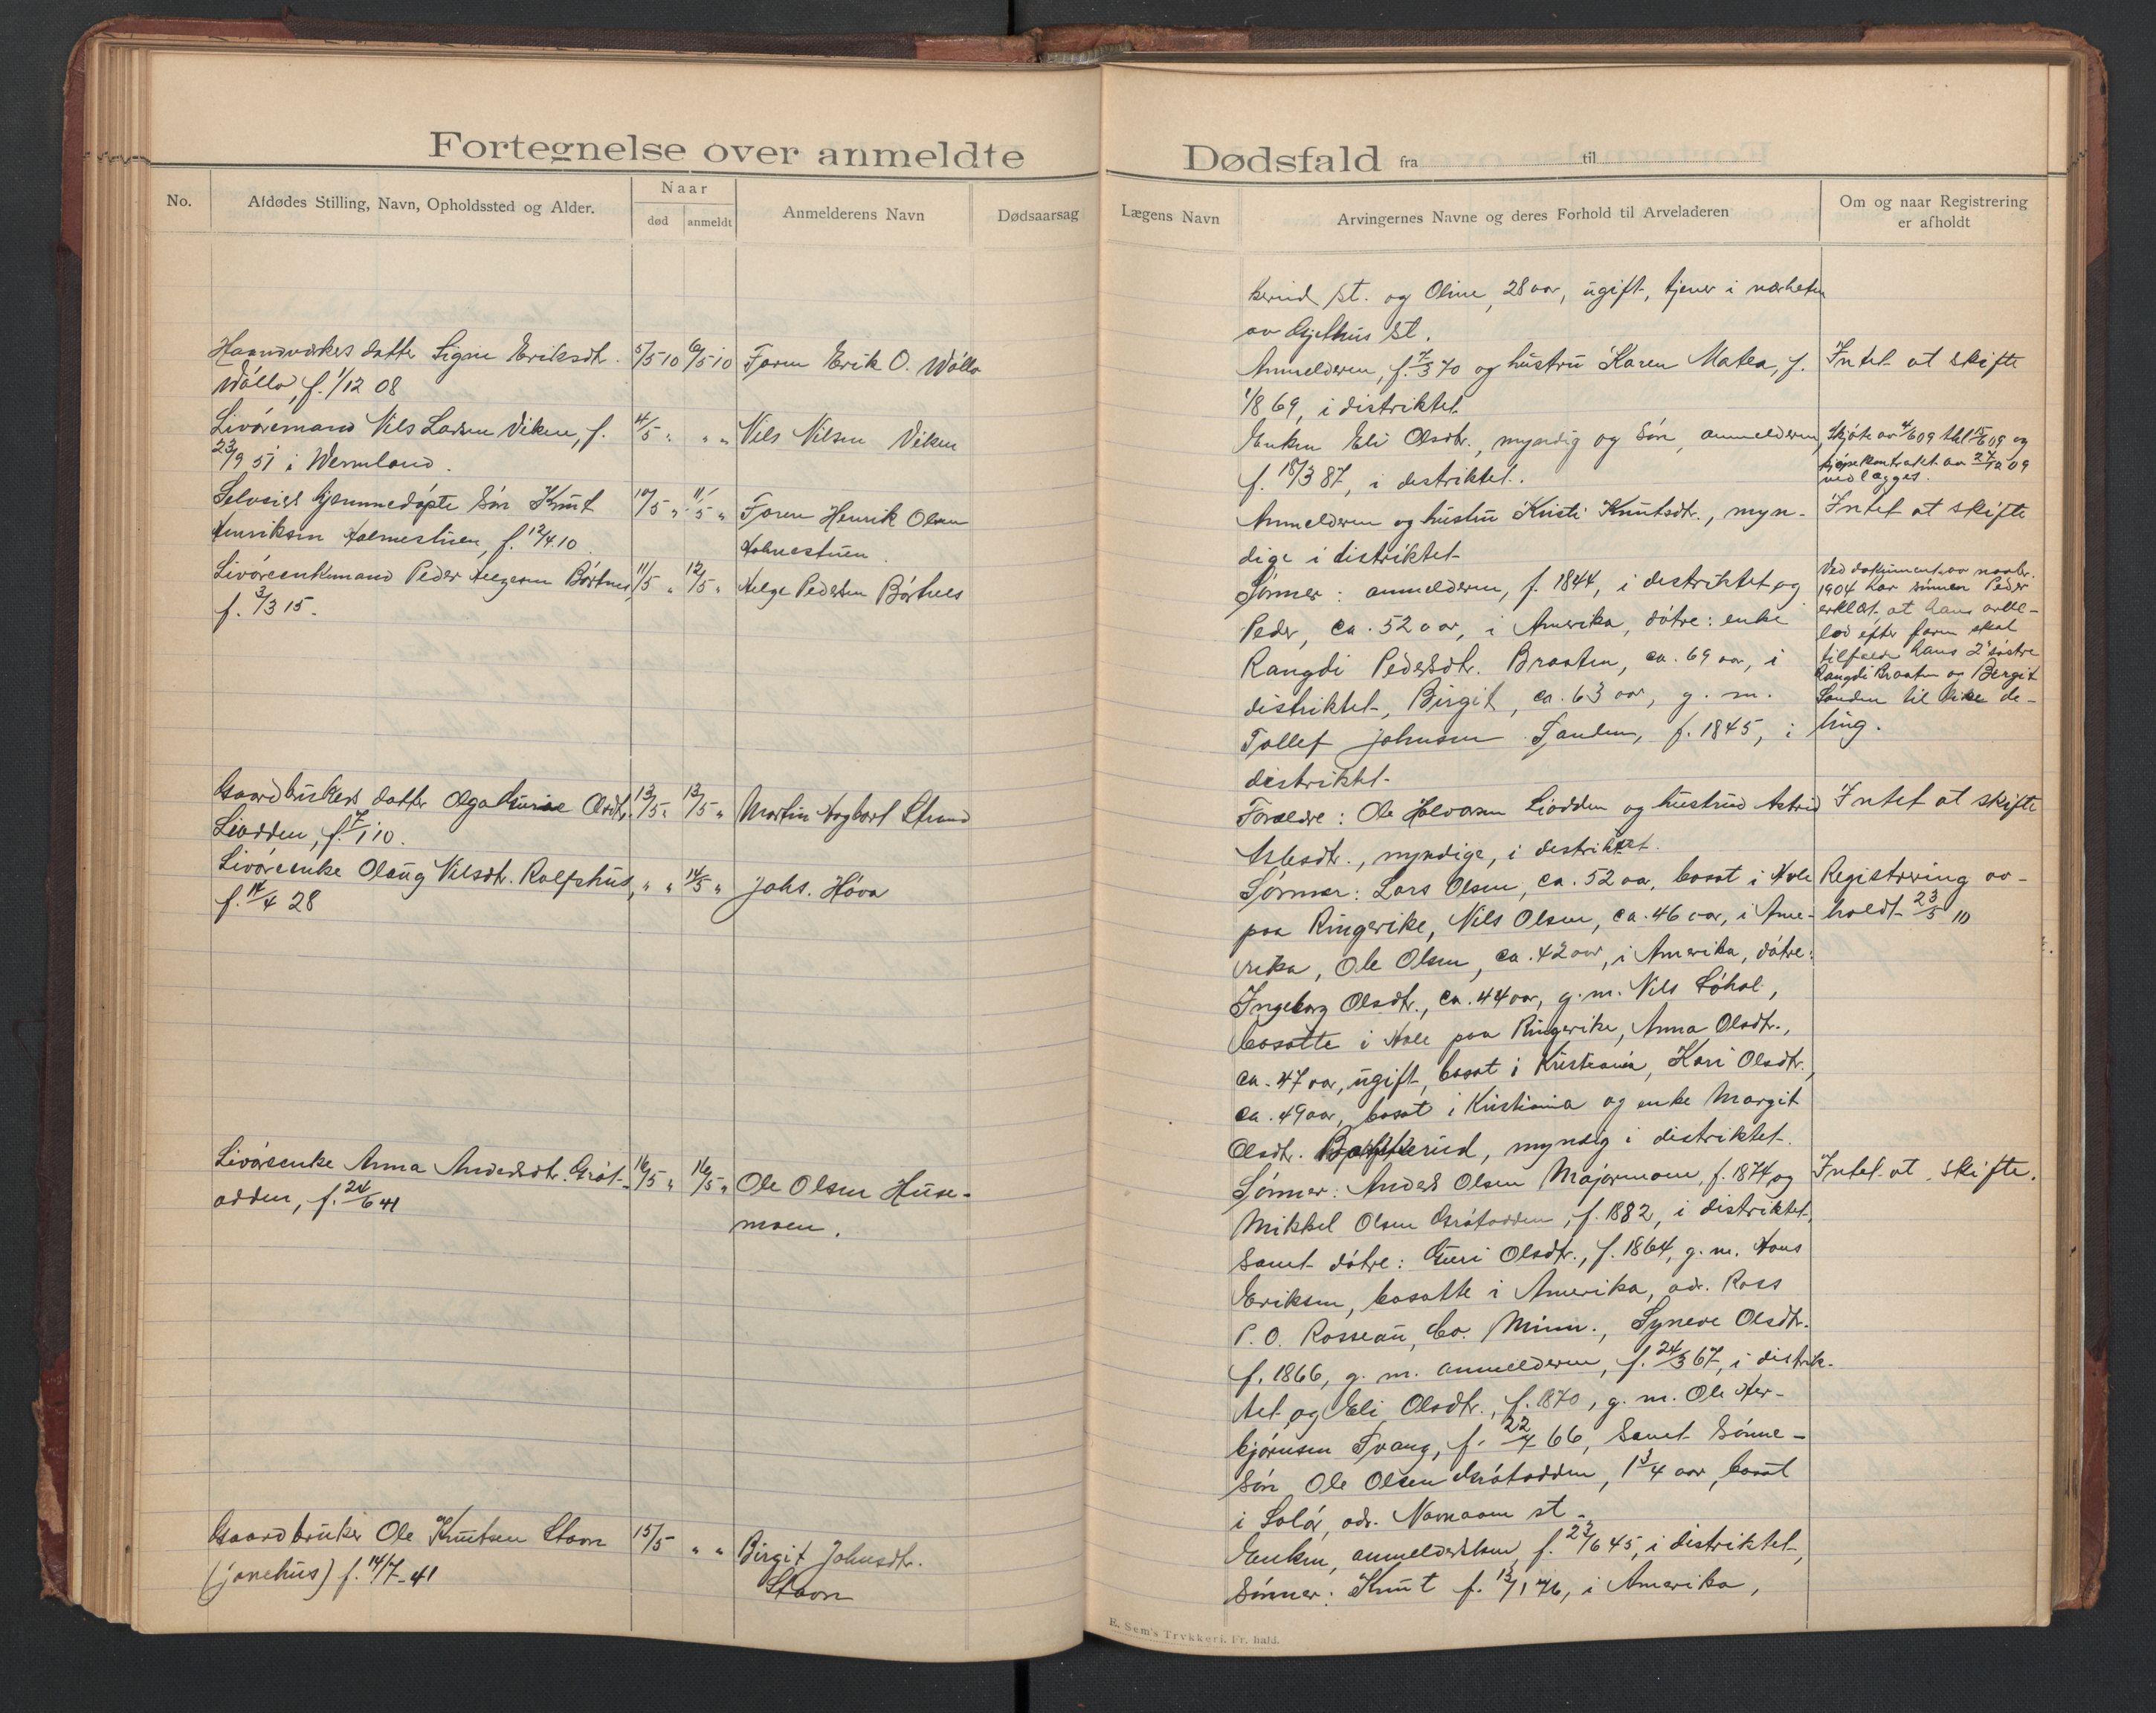 Fortegnelse over anmeldte
No.
Afdødes Stilling, Navn, Opholdssted og Alder.
Naar
død
anmeldt
Anmelderens Navn
Dødsaarsag
Haandverkers datter Signe Eriksdtr. 5/5 10 6/5 10 Faren Erik O. Wøllo
Wøllo, f. 1/12 08
Livøremand Nils Larsen Viken, f. 4/5 " " " Nils Nilsen Viken
23/9 51 i Wermland.
Selveiers hjemmedøpte søn Knut 10/5 " 11/5 " Faren Henrik Olsen
Henriksen Holmestuen, f. 12/4 10. Holmestuen
Livørsenkemand Peder Helgesen Børtnes, 11/5 " 12/5 " Helge Pedersen Børtnes
f. 3/3 15.
Gaardbrukers datter Olga Olsdtr. 13/5 " 13/5 " Martin Hagbart Strand
Liodden, f. 7/1 10.
Livørsenke Olaug Nilsdtr. Rolfshus, " " 14/5 " Johs. Høva
f. 14/4 28
Livørsenke Anna Andersdtr. Grøt- 16/5 " 16/5 " Ole Olsen Huse-
odden, f. 24/6 41 moen.
Gaardbruker Ole Knutsen Stavn 15/5 " " Birgit Johnsdtr.
(jonehus) f. 14/7-41 Stavn
Dødsfald fra til
Lægens Navn
Arvingernes Navne og deres Forhold til Arveladeren
Om og naar Registrering
er afholdt
kerud st. og Oline, 28 aar, ugift, tjener i nærheten
av Gjethus st.
Anmelderen, f. 7/3 70 og hustru Karen Matea, f. Intet at skifte
1/8 69, i distriktet.
Enken Eli Olsdtr., myndig og søn, anmelderen, Skjøte av 4/6 09 thl 15/6 09 og
f. 18/3 87, i distriktet. kjøpekontrakt av 27/12 09
vedlægges.
Anmelderen og hustru Kristi Knutsdtr., myn- Intet at skifte
dige i distriktet.
Sønner: anmelderen, f. 1844, i distriktet og Ved dokument av novbr.
Peder, ca. 52 aar, i Amerika, døtre: enke 1904 har sønnen Peder
Rangdi Pedersdtr. Braaten, ca. 69 aar, i erklært, at hans arve-
distriktet, Birgit, ca. 63 aar, g. m. lod efter faren skal
Tollef Johnsen Sanden, f. 1845, i tilfalde hans 2 søstre
distriktet. Rangdi Braaten og Bergit
Sanden til like de-
ling.
Forældre: Ole Halvorsen Liodden og hustru Astrid Intet at skifte
Asledtr., myndige, i distriktet.
Sønner: Lars Olsen, ca. 52 aar, bosat i Hole Registrering av-
paa Ringerike, Nils Olsen, ca. 46 aar, i Ame- holdt 23/5 10
rika, Ole Olsen, ca. 42 aar, i Amerika, døtre:
Ingeborg Olsdtr., ca. 44 aar, g. m. Nils Løhol,
bosatte i Hole paa Ringerike, Anna Olsdtr.,
ca. 47 aar, ugift, bosat i Kristiania, Kari Olsdtr.,
ca. 49 aar, bosat i Kristiania og enke Margit
Olsdtr. myndig i distriktet.
Sønner: Anders Olsen Majormoen, f. 1874 og Intet at skifte.
Mikkel Olsen Grøtodden, f. 1882, i distriktet,
samt døtre: Guri Olsdtr., f. 1864, g. m. Hans
Eriksen, bosatte i Amerika, adr. Ross
P. O. Rosseau, Co. Minn., Syneve Olsdtr.
f. 1866, g. m. anmelderen, f. 24/3 67, i distrik-
tet og Eli Olsdtr., f. 1870, g. m. Ole Her-
bjørnsen Svang, f. 22/7 66, samt sønne-
søn Ole Olsen Grøtodden, 1 3/4 aar, bosat
i Solør, adr. Navnaaen st.
Enken, anmeldersken f. 23/6 45, i distriktet,
Sønner: Knut f. 13/1 76, i Amerika,
E. Sem's Trykkeri, Fr. hald.